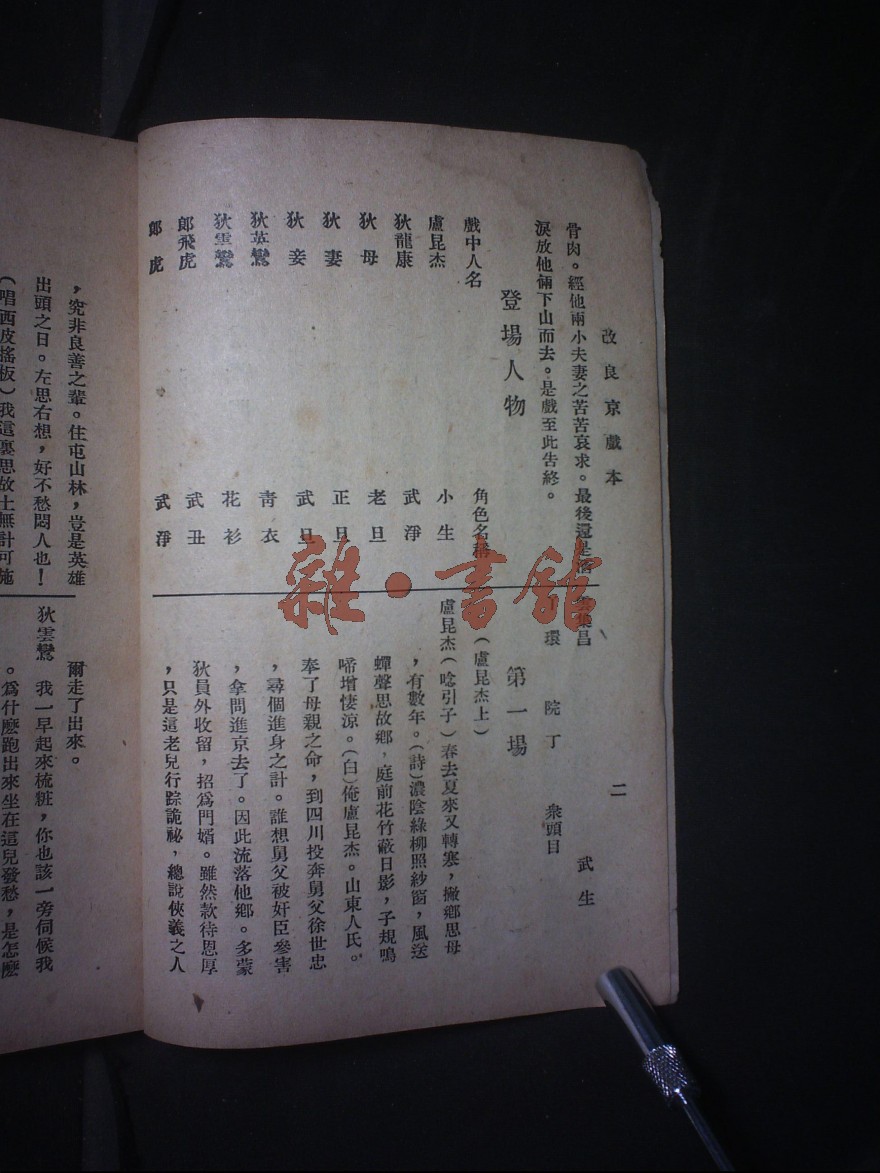 改良京戲本
二
骨肉。經他兩小夫妻之苦苦哀求。最後還是
淚放他倆下山而去。是戲至此告終。
登場人物
戲中人名 角色名稱
盧昆杰 小生
狄龍康 武淨
狄母 老旦
狄妻 正旦
狄妾 武旦
狄英鸞 青衣
狄雲鸞 花衫
郎飛虎 武丑
郎虎 武淨
昌 武生
環 院丁 衆頭目
第一場
(盧昆杰上)
盧昆杰(唸引子)春去夏來又轉寒,撇鄉思母
,有數年。(詩)濃陰綠柳照紗窗,風送
蟬聲思故鄉,庭前花竹蔽日影,子規鳴
啼增悽涼。(白)俺盧昆杰。山東人氏。
奉了母親之命,到四川投奔舅父徐世忠
,尋個進身之計。誰想舅父被奸臣參害
,拿問進京去了。因此流落他鄉。多蒙
狄員外收留,招爲門婿。雖然款待恩厚
,只是這老兒行踪詭祕,總說俠義之人
,究非良善之輩。住屯山林,豈是英雄
出頭之日。左思右想,好不愁悶人也!
(唱西皮搖板)我這裏思故土無計可施
爾走了出來。
狄雲鸞 我一早起來梳粧,你也該一旁伺候我
。爲什麼跑出來坐在這兒發愁,是怎麼
雜·書館